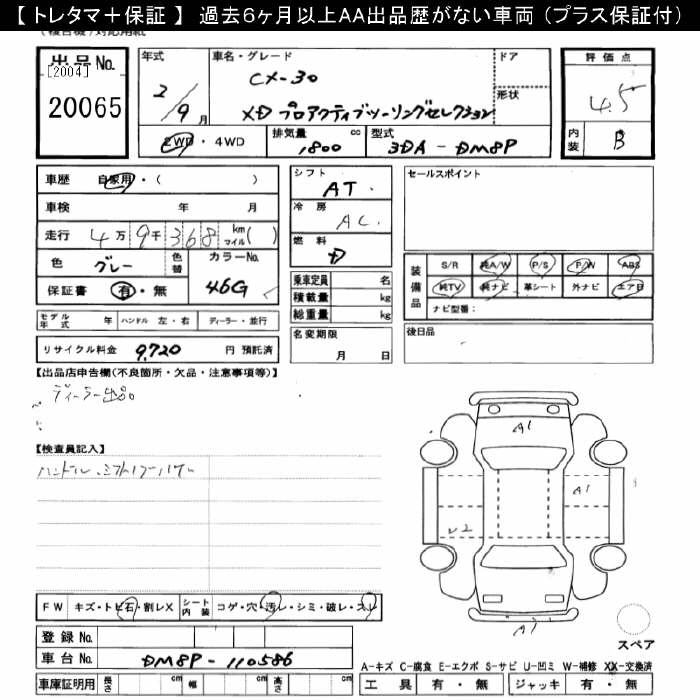 【 トレタマ＋保証 】 過去6ヶ月以上AA出品歴がない車両（プラス保証付）
出品No. [2004] 20065
年式 2/9月
車名・グレード CX-30
XD プロアクティブツーリングセレクション
ドア
形状
2WD・4WD
排気量 1,800 cc
型式 3DA-DM8P
評価点 4.5
内装 B
車歴 自家用・（ ）
車検 年 月
走行 4万9千368 km マイル( )
色 グレー 色替
カラーNo. 46G
保証書 有・無
モデル年式 年 ハンドル 左・右 ディーラー・並行
リサイクル料金 9,720 円 預託済
シフト AT
冷房 AC
燃料 D
乗車定員 名
積載量 kg
総重量 kg
名変期限
月 日
セールスポイント
装備品 S/R 純A/W P/S P/W ABS
純TV 純ナビ 革シート 外ナビ エアB
ナビ型番：
後日品
【出品店申告欄(不良箇所・欠品・注意事項等)】
ディーラー出品
【検査員記入】
FW キズ・トビ石・割レX
シート内装 コゲ・穴・汚レ・シミ・破レ・スレ
登録No.
車台No. DM8P-110586
車庫証明用 長さ cm 幅 cm 高さ cm
A1
A1
レ2
スペア
A－キズ C－腐食 E－エクボ S－サビ U－凹ミ W－補修 XX－交換済
工具 有・無 ジャッキ 有・無